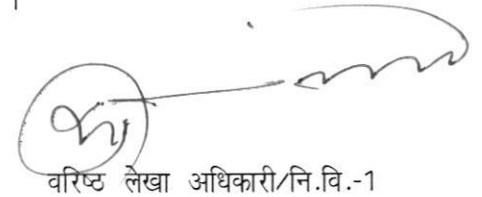 वरिष्ठ लेखा अधिकारी/नि.वि.-1